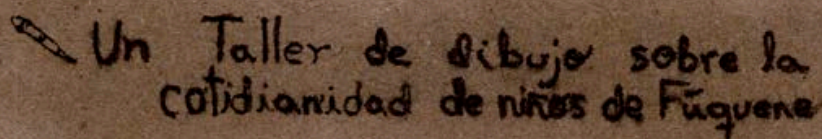 Un Taller de dibujo sobre la
cotidianidad de niños de Fúquene